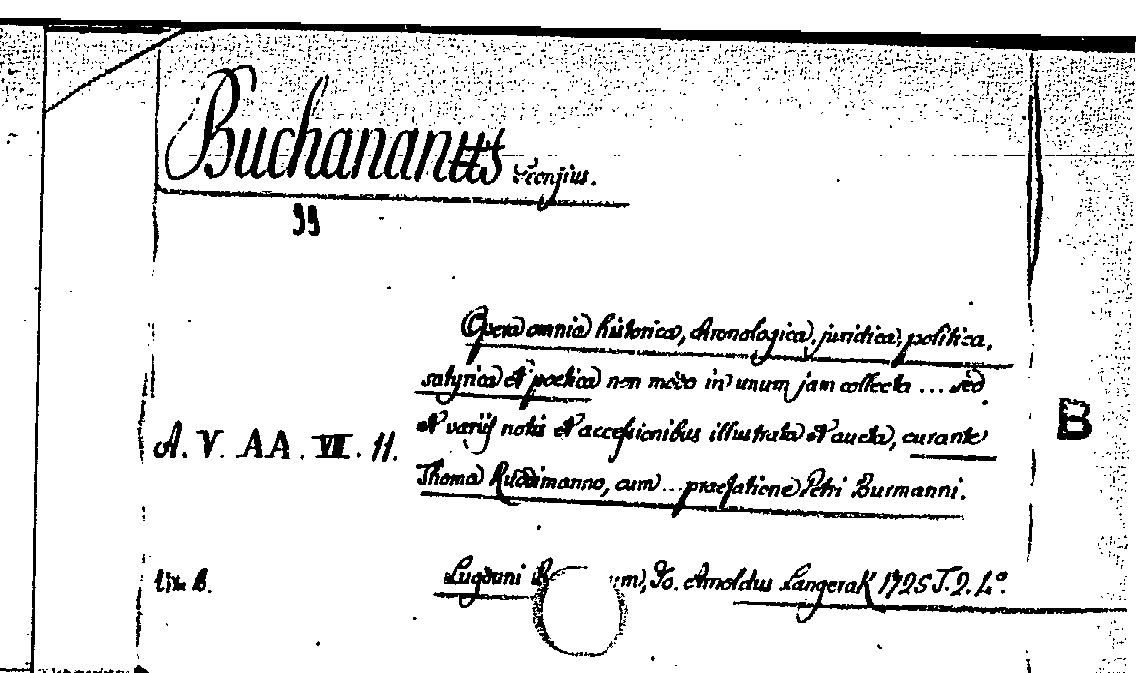 Buchananus
99
Opera omnia historica, chronologica, juridica, politica,
satyrica et poetica non modo in unum jam collecta ... sed
B
et variis notis et accessionibus illustrata et aucta, curante
A. V. AA. VII. 11.
Thoma Ruddimanno, cum ... praefatione Petri Burmanni.
Lugduni um, Jo. Arnoldus Langerak 1725 T. 2. 4º.